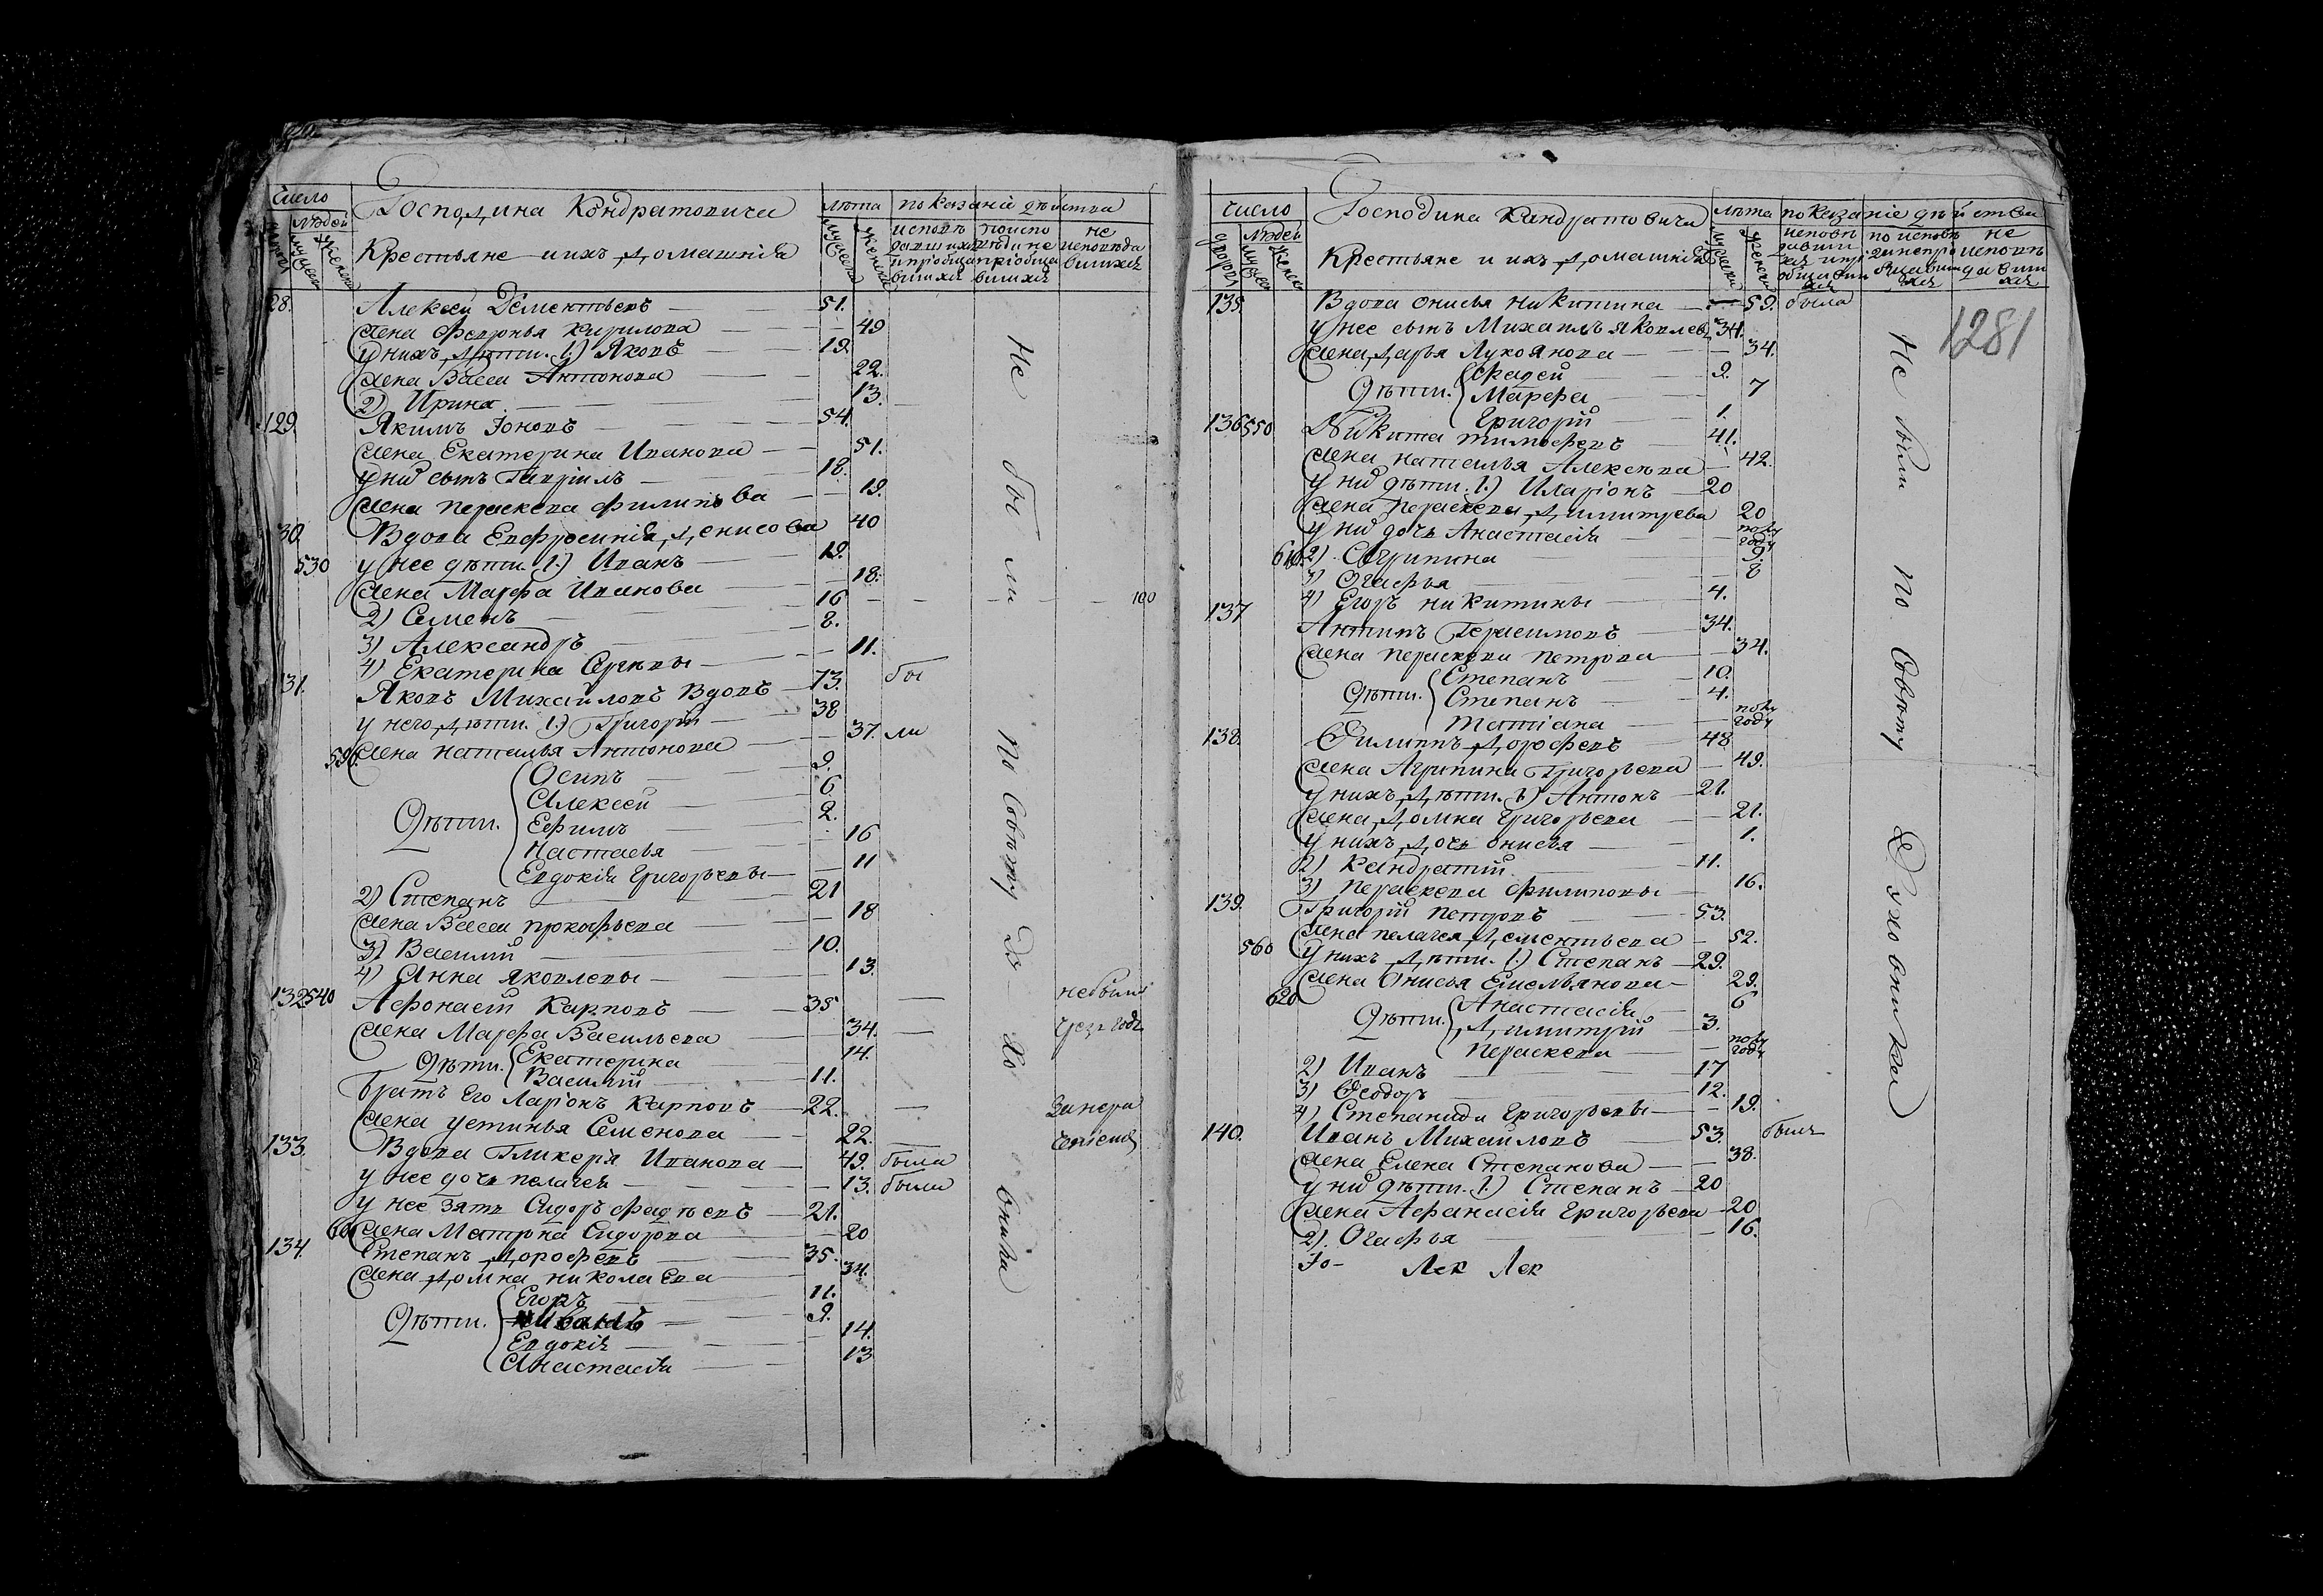 число
людей
дворовъ
мужеска
женска
Господина Кондратовича
Крестьяне и ихъ домашнія
лѣта
мужеска
женска
показаніи дѣйства
исповѣдавшихся и пріобщавшихся
по исповѣди не пріобщавшихся
не исповѣдавшихся
28. Алексѣй Дементьевъ 51.
жена Февронья Кирилова 49
у нихъ дѣти. 1.) Яковъ 19.
жена Васса Антонова 22.
2) Ирина 13.
129. Якимъ Іоновъ 54.
жена Екатерина Иванова 51.
у ни˟ сынъ Гавріилъ 18.
жена Параскева Филипова 19.
30. Вдова Евфросинія Денисова 40
530 у нее дѣти 1.) Иванъ 19.
жена Марфа Иванова 18.
2) Семенъ 16 100
3) Александръ 8.
4) Екатерина Сергѣевы 11.
131. Яковъ Михайловъ Вдовъ 73. бы
у него дѣти. 1.) Григорій 38
590 жена Наталья Антонова 37. ли
Дѣти.
Осипъ 9.
Алексѣй 6
Ефимъ 2.
Настасья 16
Евдокія Григорьевы 11
2) Степанъ 21
жена Васса Прокофьева 18
3) Василій 10.
4) Анна Яковлевы 13.
132 540 Афонасій Карповъ 35 не были
жена Марфа Васильева 34. чрезъ годъ
Дѣти.
Екатерина 14.
Василій 11.
братъ Его Ларіонъ Карповъ 22. Занера
жена Устинья Семенова 22.
133. Вдова Гликерія Иванова 49. была
у нее дочь Пелагея 13. были
у нее Зять Сидоръ Фадѣевъ 21.
600 жена Матрона Сидорова 20
134. Степанъ Дорофѣевъ 35.
жена Домна Николаева 34.
Дѣти.
Егоръ 11.
Иванъ 9.
Евдокія 14.
Анастасія 13
Не были по Совѣту Духовника
число
людей
дворовъ
мужеска
женска
Господина Кандратовича
Крестьяне и ихъ домашнія
лѣта
мужеска
женска
показаніе дѣйства
исповѣдавшихся и пріобщавшихся
по исповѣди не пріобщавшихся
не исповѣдавшихся
1281
135. Вдова Онисья Никитина 59. была
у нее сынъ Михаилъ Яковлевъ 34.
жена Дарья Лукоянова 34.
Дѣти.
Фадей 9.
Марфа 7
Григорій 1.
136 550 Никита Тимофеевъ 41.
жена Наталья Алексѣева 42.
у ни˟ дѣти. 1.) Иларіонъ 20
жена Параскева Димитрева 20
у ни˟ дочь Анастасія полу году
610 2) Агрипина 9
3) Огафья 8
4) Егоръ Никитины 4.
137 Антипъ Герасимовъ 34.
жена Параскева Петрова 34.
Дѣти.
Степанъ 10.
Степанъ 4.
Татіана полу году
138. Филиппъ Дорофеевъ 48
жена Агрипина Григорьева 49.
у нихъ дѣти. 1.) Антонъ 21.
жена Домна Григорьева 21.
у нихъ дочь Онисья 1.
2) Кандратій 11.
3) Параскева Филиповы 16.
139. Григорій Петровъ 53.
жена Пелагея Дементьева 52.
560 у нихъ дѣти. 1.) Степанъ 29.
жена Онисья Емельянова 29.
620 Дѣти.
Анастасія 6
Димитрій 3.
Параскева полу году
2) Иванъ 17
3) Ѳеодоръ 12.
4) Степанида Григорьевы 19.
140. Иванъ Михайловъ 53. былъ
жена Елена Степанова 38.
у ни˟ дѣти. 1.) Степанъ 20
жена Афанасія Григорьева 20
2). Огафья 16.
Не были по Совѣту Духовника